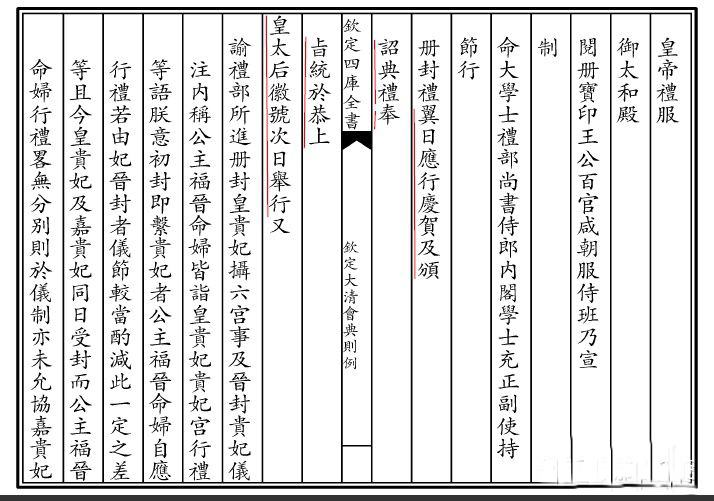 皇帝禮服
御太和殿
閱册寶印王公百官咸朝服侍班乃宣
制
命大學士禮部尚書侍郎内閣學士充正副使持
節行
册封禮翼日應行慶賀及頒
詔典禮奉
欽定四庫全書
欽定大清會典則例
㫖統於恭上
皇太后徽號次日舉行又
諭禮部所進册封皇貴妃攝六宫事及晉封貴妃儀
注内稱公主福晉命婦皆詣皇貴妃貴妃宫行禮
等語朕意初封即繫貴妃者公主福晉命婦自應
行禮若由妃晉封者儀節較當酌減此一定之差
等且今皇貴妃及嘉貴妃同日受封而公主福晉
命婦行禮畧無分别則於儀制亦未允協嘉貴妃